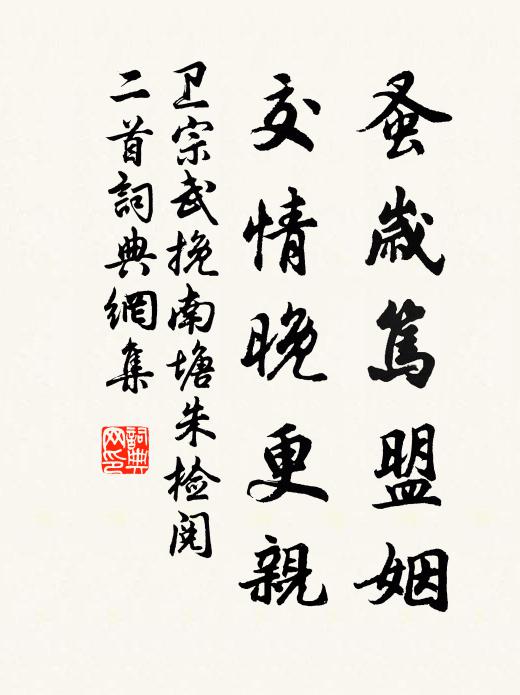 蚤歲篤盟姻
交情晚更親
卫宗武挽南塘朱检阅
二首詞典網集
詞典網印